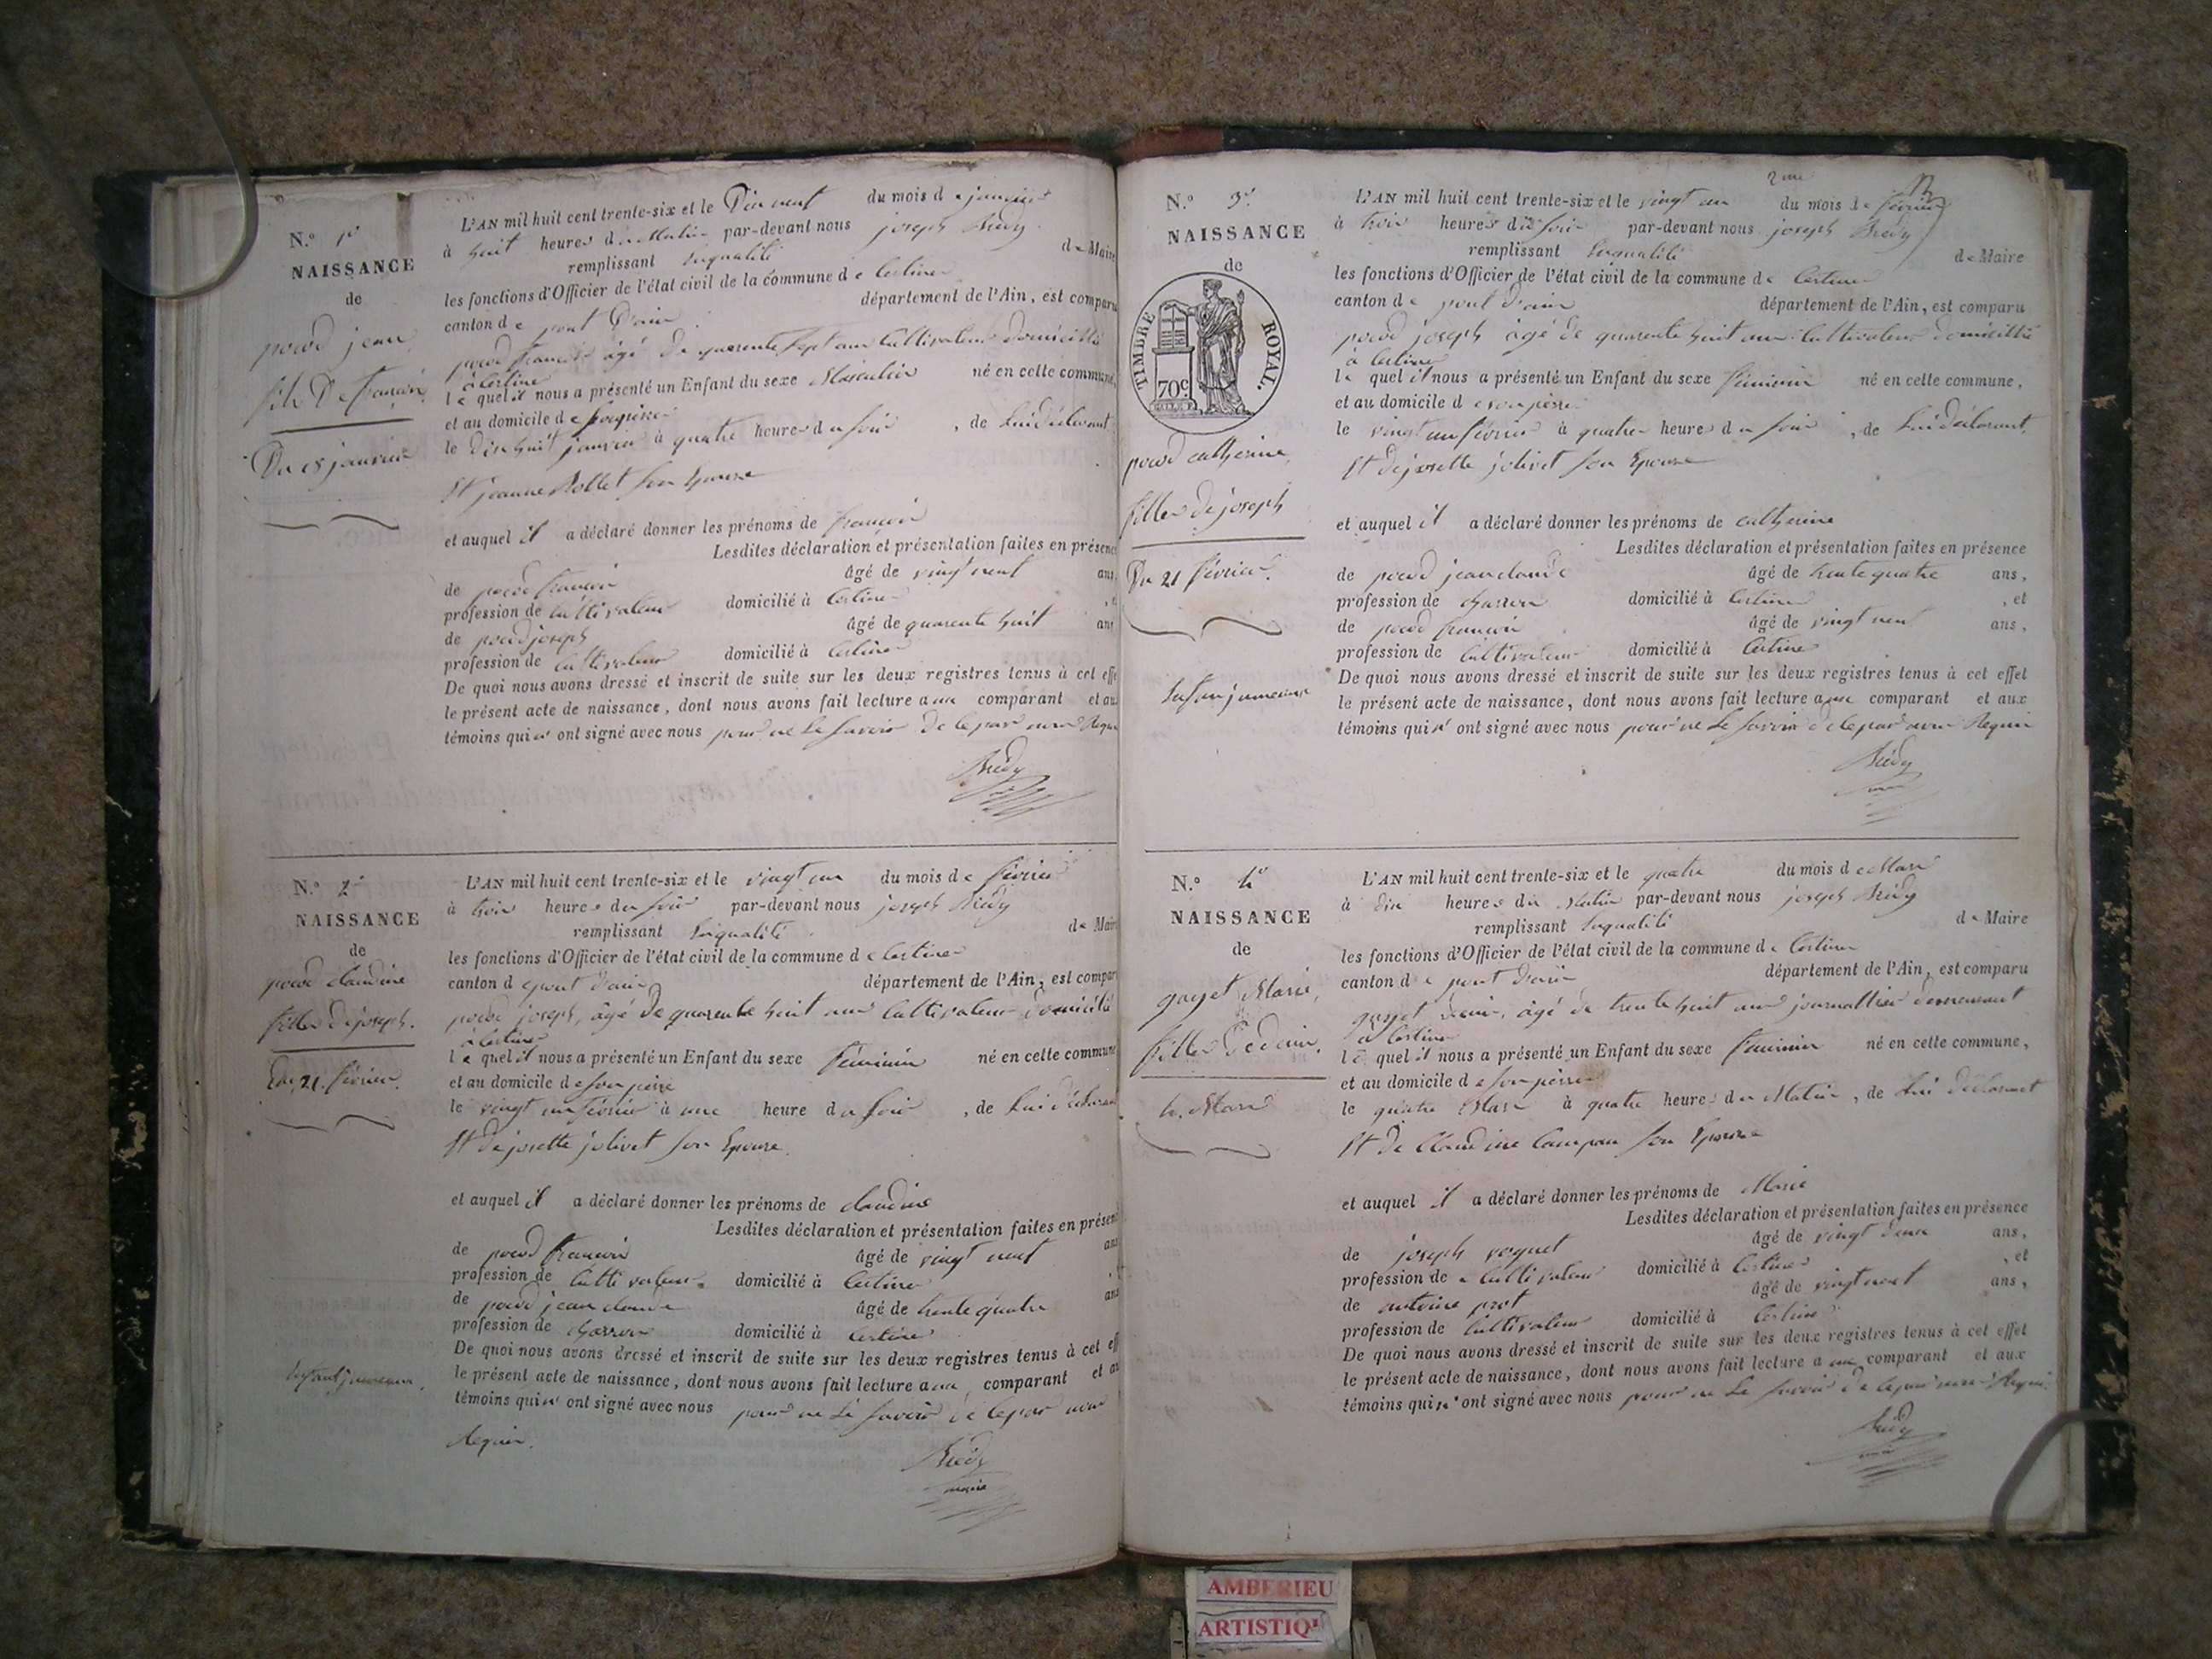 N.o 1er
NAISSANCE
de
jean
fils De françois
Du 18 janvier
L'AN mil huit cent trente-six et le Dix neuf du mois de janvier
à huit heures du Matin par-devant nous joseph
remplissant de Maire
les fonctions d'Officier de l'état civil de la commune de Certines
canton de pont D'ain département de l'Ain, est comparu
françois âgé De quarente sept ans Cultivateur domicillié
à Certines
lequel il nous a présenté un Enfant du sexe Masculin né en cette commune,
et au domicile de
le dix huit janvier à quatre heures du soir, de Lui Déclarant
Et jeanne Rollet son Epouse
et auquel il a déclaré donner les prénoms de françois
Lesdites déclaration et présentation faites en présence
de françois âgé de vingt neuf ans,
profession de cultivateur domicilié à Certines
de joseph âgé de quarente huit ans
profession de Cultivateur domicilié à Certines
De quoi nous avons dressé et inscrit de suite sur les deux registres tenus à cet eff
le présent acte de naissance, dont nous avons fait lecture aux comparant et au
témoins qui n' ont signé avec nous pour ne Le Savoir De ce
N.o 2e
NAISSANCE
de
claudine
fille De joseph.
Du 21 février
L'AN mil huit cent trente-six et le vingt un du mois de février
à trois heures du soir par-devant nous joseph
remplissant de Maire
les fonctions d'Officier de l'état civil de la commune de Certines
canton de pont d'ain département de l'Ain, est compar
joseph, âgé De quarente huit ans Cultivateur Domicilié
à Certines
lequel il nous a présenté un Enfant du sexe féminin né en cette commune
et au domicile de son père
le vingt un février à une heure du soir, de Lui Déclarant
Et De josette jolivet son Epouse.
et auquel il a déclaré donner les prénoms de claudine
Lesdites déclaration et présentation faites en présen
de françois âgé de vingt neuf ans
profession de Cultivateur domicilié à Certines
de jean claude âgé de trente quatre ans
profession de charron domicilié à Certines
De quoi nous avons dressé et inscrit de suite sur les deux registres tenus à cet eff
le présent acte de naissance, dont nous avons fait lecture aux comparant et au
témoins qui n' ont signé avec nous pour ne Le Savoir De ce
Requis.
maire
2me
N.o 3e
NAISSANCE
de
TIMBRE ROYAL.
70c
catherine
fille De joseph
Du 21 février.
L'AN mil huit cent trente-six et le vingt un du mois de février
à trois heures du soir par-devant nous joseph
remplissant de Maire
les fonctions d'Officier de l'état civil de la commune de Certines
canton de pont d'ain département de l'Ain, est comparu
joseph âgé de quarente huit ans Cultivateur domicillié
à Certines
lequel il nous a présenté un Enfant du sexe féminin né en cette commune,
et au domicile de son père
le vingt un février à quatre heures du soir, de Lui déclarant,
Et de josette jolivet son Epouse
et auquel il a déclaré donner les prénoms de catherine
Lesdites déclaration et présentation faites en présence
de jean claude âgé de trente quatre ans,
profession de charron domicilié à Certines, et
de françois âgé de vingt neuf ans,
profession de Cultivateur domicilié à Certines
De quoi nous avons dressé et inscrit de suite sur les deux registres tenus à cet effet
le présent acte de naissance, dont nous avons fait lecture aux comparant et aux
témoins qui n' ont signé avec nous pour ne Le Savoir de ce Requis
N.o 4e
NAISSANCE
de
Marie,
fille De
4. Mars
L'AN mil huit cent trente-six et le quatre du mois de Mars
à dix heures du Matin par-devant nous joseph
remplissant de Maire
les fonctions d'Officier de l'état civil de la commune de Certines
canton de pont d'ain département de l'Ain, est comparu
âgé de trente huit ans journallier demeurant
à Certines
lequel il nous a présenté un Enfant du sexe féminin né en cette commune,
et au domicile de son père
le quatre Mars à quatre heures du Matin, de Lui déclarant
Et De Claudine son Epouse
et auquel il a déclaré donner les prénoms de Marie
Lesdites déclaration et présentation faites en présence
de joseph âgé de vingt deux ans,
profession de cultivateur domicilié à Certines, et
de antoine âgé de vingt neuf ans,
profession de Cultivateur domicilié à Certines
De quoi nous avons dressé et inscrit de suite sur les deux registres tenus à cet effet
le présent acte de naissance, dont nous avons fait lecture aux comparant et aux
témoins qui n' ont signé avec nous pour ne Le Savoir De ce
AMBERIEU
ARTISTIQ